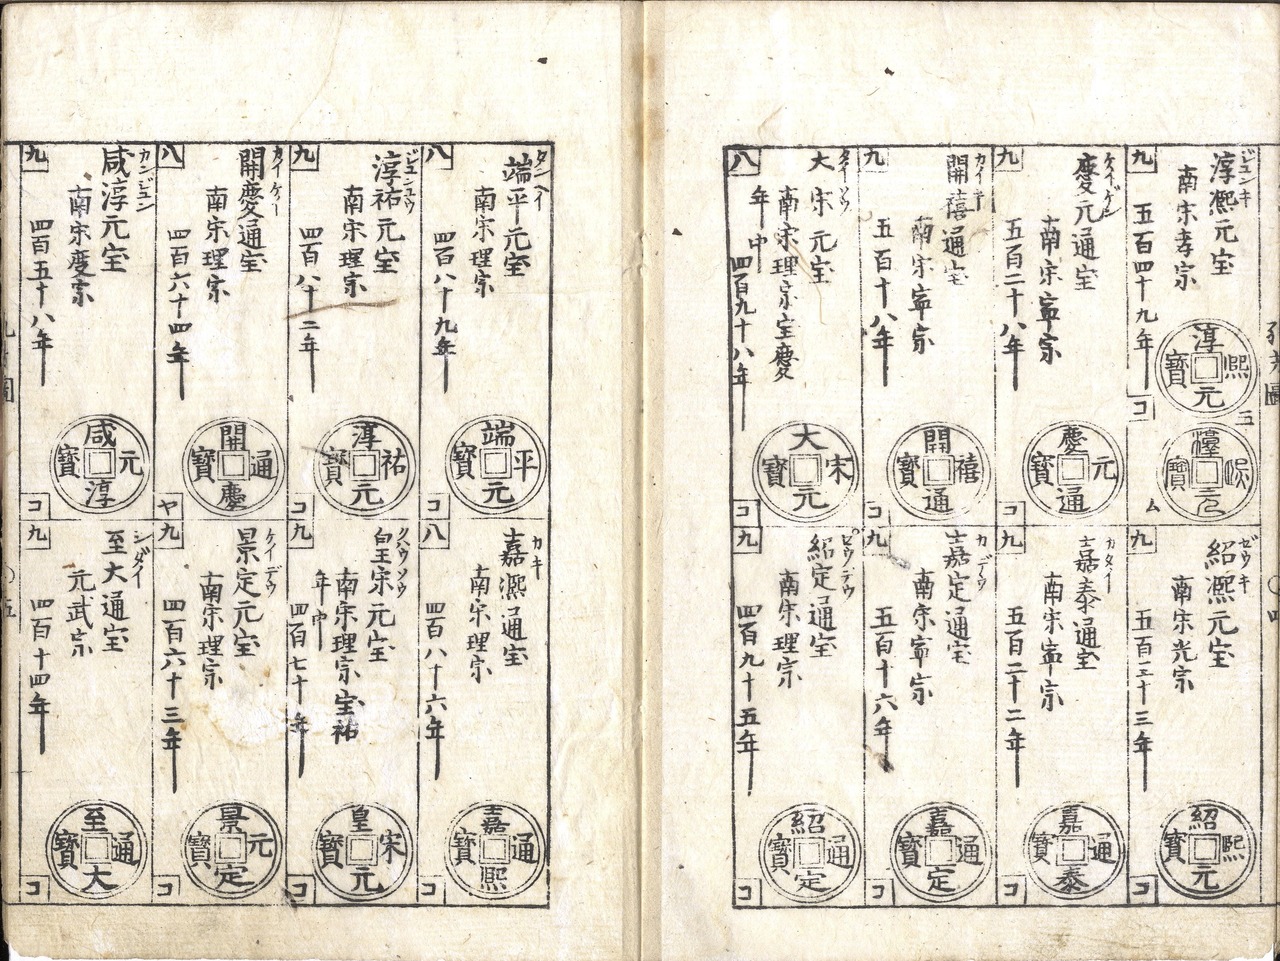 九
ジュンキ
淳熙元宝
南宋孝宗
五百四十九年
淳熙元寶
コ
ム
九
ケイゲン
慶元通宝
南宋寧宗
五百二十八年
慶元通寶
コ
九
カイキ
開禧通宝
南宋寧宗
五百十八年
開禧通寶
コ
八
タイソウ
大宋元宝
南宋理宗宝慶
年中
四百九十八年
大宋元寶
コ
九
ゼウキ
紹熙元宝
南宋光宗
五百三十三年
紹熙元寶
コ
九
カタイ
嘉泰通宝
南宋寧宗
五百二十二年
嘉泰通寶
コ
九
カデウ
嘉定通宝
南宋寧宗
五百十六年
嘉定通寶
コ
九
ゼウデウ
紹定通宝
南宋理宗
四百九十五年
紹定通寶
コ
八
タンヘイ
端平元宝
南宋理宗
四百八十九年
端平元寶
コ
九
ジュンユウ
淳祐元宝
南宋理宗
四百八十二年
淳祐元寶
コ
八
カイケー
開慶通宝
南宋理宗
四百六十四年
開慶通寶
ヤ
九
カンジュン
咸淳元宝
南宋慶宗
四百五十八年
咸淳元寶
コ
八
カキ
嘉熙通宝
南宋理宗
四百八十六年
嘉熙通寶
コ
九
クハウソウ
皇宋元宝
南宋理宗宝祐
年中
四百七十年
皇宋元寶
コ
九
ケイデウ
景定元宝
南宋理宗
四百六十三年
景定元寶
コ
九
シダイ
至大通宝
元武宗
四百十四年
至大通寶
コ